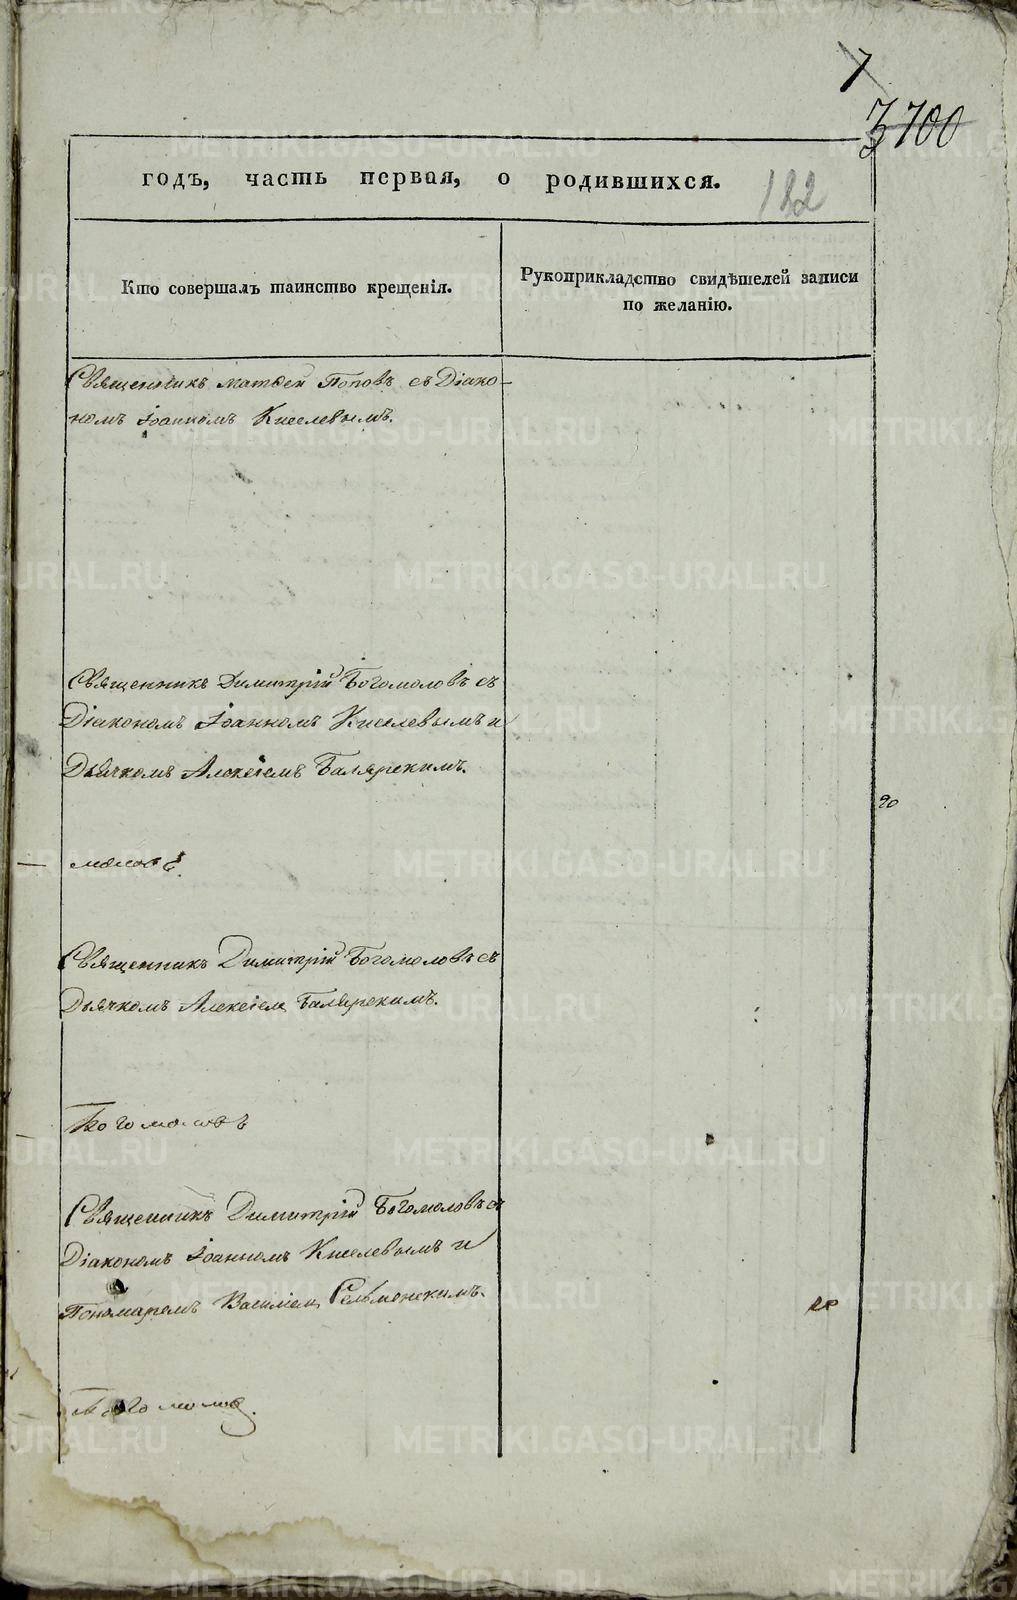 7
3700
годъ, часть первая, о родившихся.
182
Кто совершалъ таинство крещенія.
Рукоприкладство свидѣтелей записи
по желанію.
Священникъ Матѳей Поповъ съ Діако-
номъ Іоанномъ Киселевымъ.
Священникъ Димитрій Богомоловъ съ
Діакономъ Іоанномъ Киселевымъ и
Дьячкомъ Алексіемъ Балярскимъ.
моловъ.
Священникъ Димитрій Богомоловъ съ
Дьячкомъ Алексіемъ Балярскимъ.
Богомоловъ
Священникъ Димитрій Богомоловъ съ
Діакономъ Іоанномъ Киселевымъ и
Пономаремъ Василіемъ Сельменскимъ.
Богомолов.
METRIKI.GASO-URAL.RU